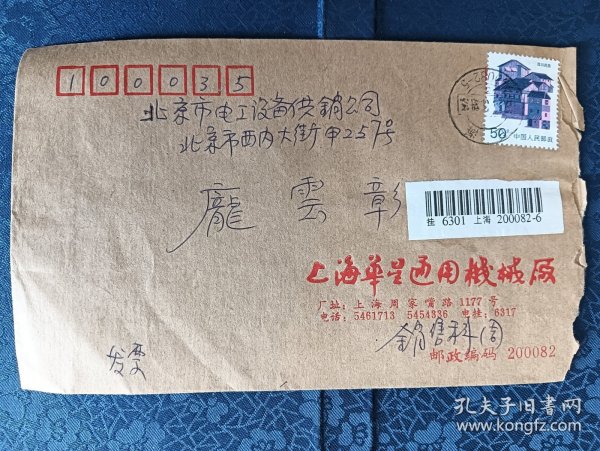 100035
北京市电工设备供銷公司
北京市西内大街甲257号
龐雲彰
50分 中国人民邮政
挂 6301 上海 200082-6
上海華星通用機械廠
厂址：上海周家嘴路1177号
电话：5461713 5454336 电挂：6317
銷售科周
邮政编码 200082
发票
孔夫子旧书网
www.kongfz.com